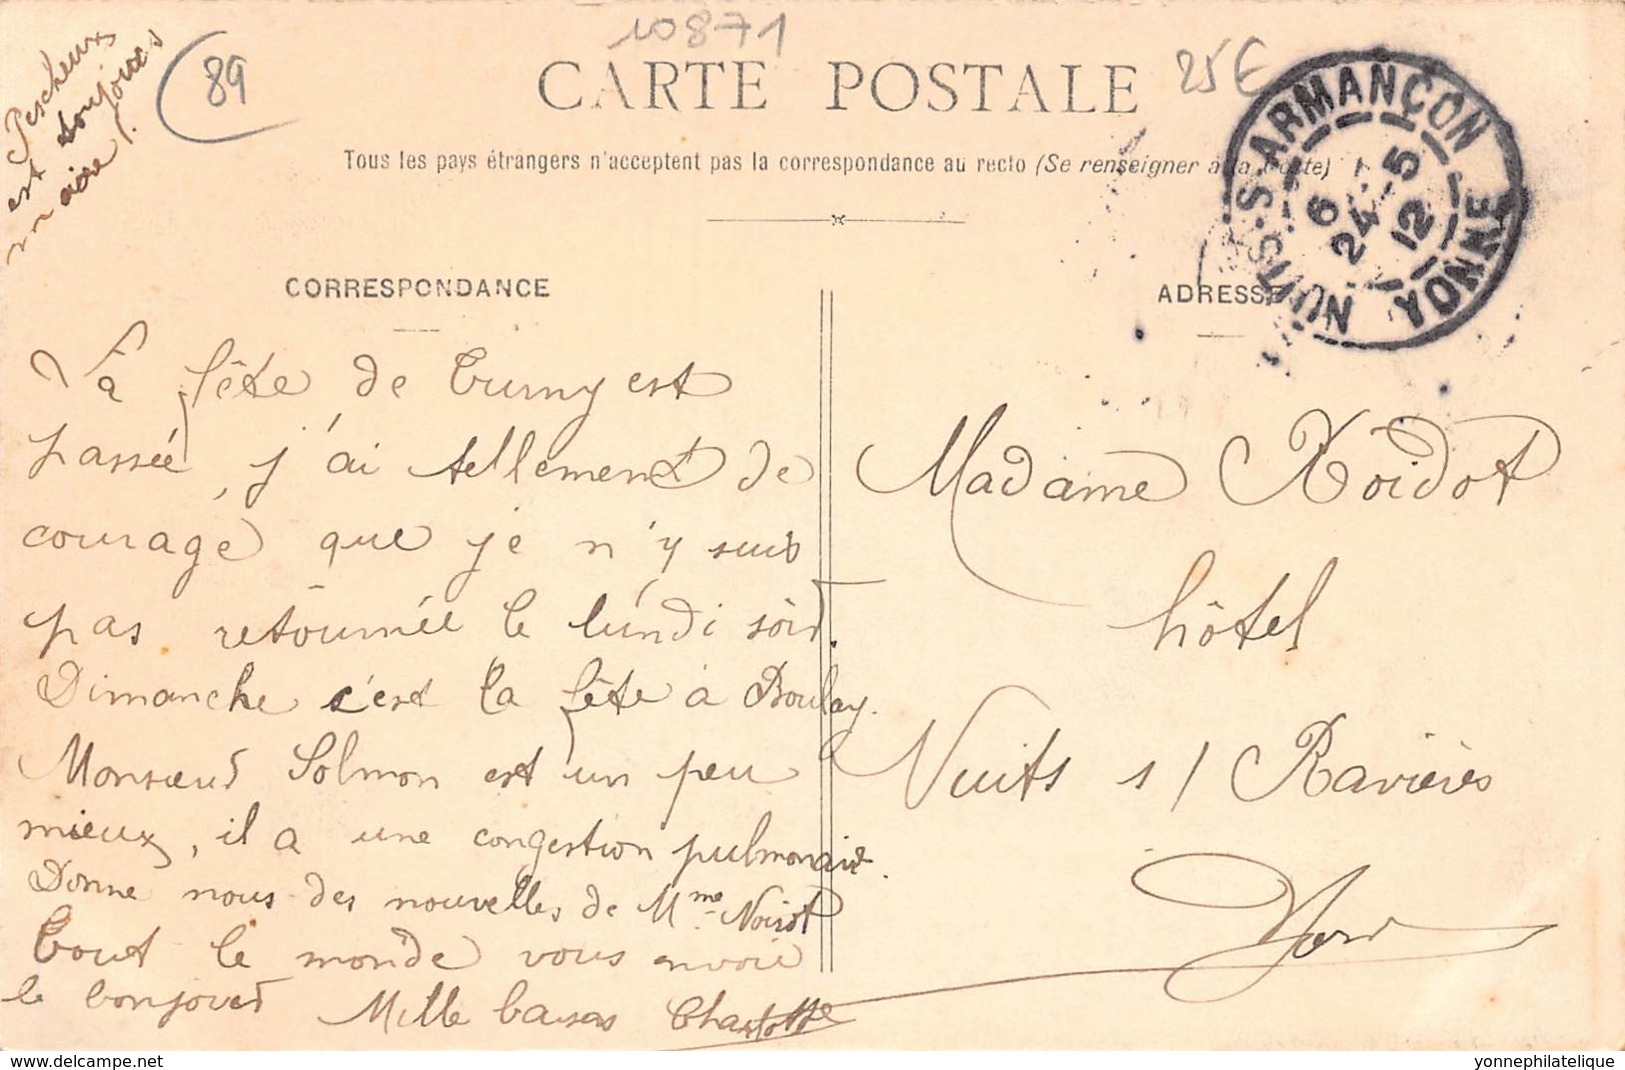 10871
Pescheux
est toujours
maire !
89
25€
CARTE POSTALE
Tous les pays étrangers n'acceptent pas la correspondance au recto (Se renseigner à la Poste)
NUITS-S-ARMANÇON
6
24-5
12
YONNE
CORRESPONDANCE
ADRESSE
La fête de Tumy est
passée, j'ai tellement de
courage que je n'y suis
pas retournée le lundi soir.
Dimanche c'est la fête à Boulay.
Monsieur Solmon est un peu
mieux, il a une congestion pulmonaire.
Donne nous des nouvelles de Mme Noirot
Tout le monde vous envoie
le bonjour Mille baisers Charlotte
Madame Noidot
hôtel
Nuits s/ Ravières
Yon
delcampe.net
yonnephilatelique